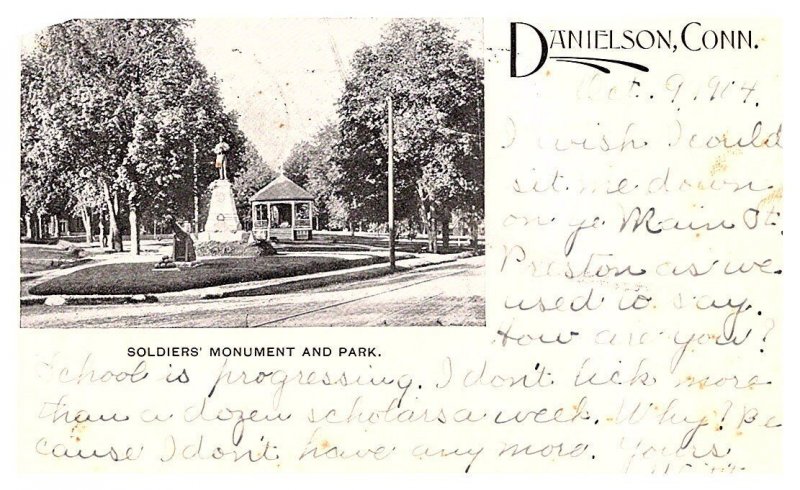 DANIELSON, CONN.
Oct. 9, 1904.
I wish I could
sit me down
on ye Main St.
Preston as we
used to say.
How are you?
SOLDIERS' MONUMENT AND PARK.
School is progressing. I don't lick more
than a dozen scholars a week. Why? Be
cause I don't have any more. Yours